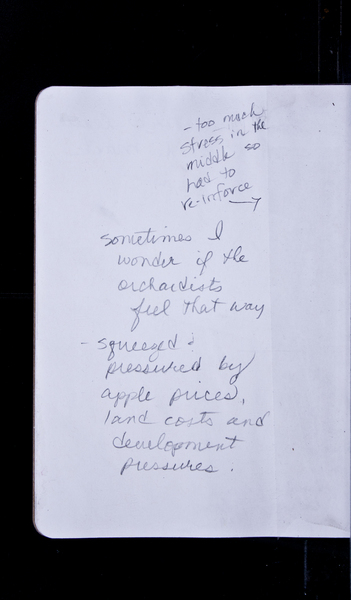 - too much
stress in the
middle so
had to
re-inforce →
sometimes I
wonder if the
orchardists
feel that way
- squeezed &
pressured by
apple prices,
land costs and
development
pressures.